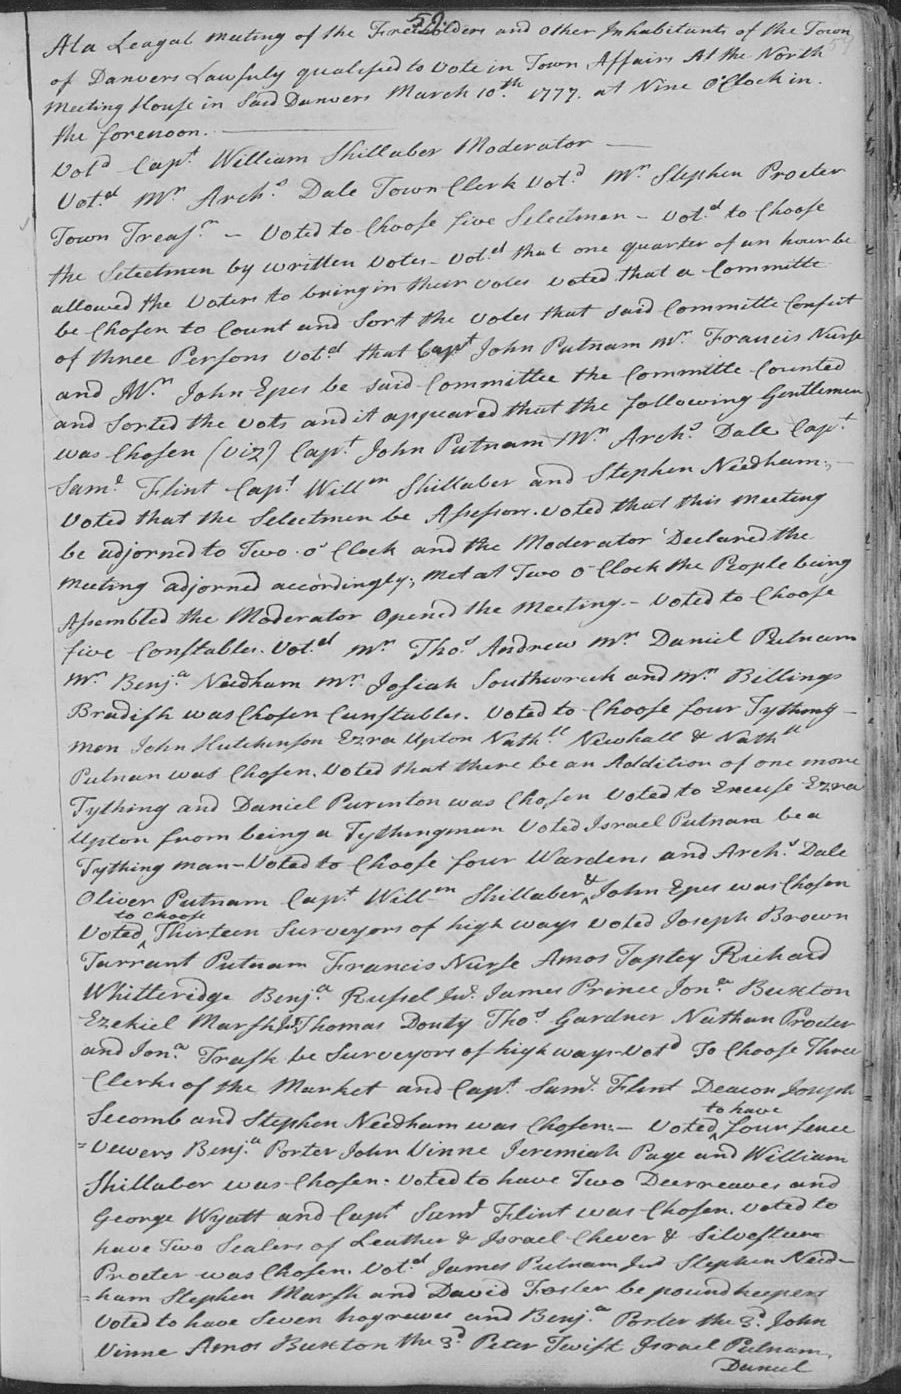 59.
At a Leagal meeting of the Freeholders and other Inhabitants of the Town
of Danvers Lawfuly qualified to vote in Town Affairs At the North
Meeting House in Said Danvers March 10th 1777. at Nine O'Clock in
the forenoon.
Votd Capt William Shillaber Moderator
Voted Mr Archs Dale Town Clerk Votd Mr Stephen Procter
Town Treasr — Voted to Choose five Selectmen — Voted to Choose
the Selectmen by written Votes — Voted that one quarter of an hour be
allowed the Voters to bring in their votes voted that a Committe
be Chosen to Count and Sort the votes that said Committe Consist
of three Persons Voted that Capt John Putnam Mr Francis Nurse
and Mr John Epes be said Committee the Committe Counted
and Sorted the Vots and it appeared that the following Gentlemen
was Chosen (viz) Capt John Putnam Mr Archs Dale Capt
Saml Flint Capt Willm Shillaber and Stephen Needham. —
Voted that the Selectmen be Assessors. Voted that this Meeting
be adjorned to Two o'Clock and the Moderator Declared the
Meeting adjorned accordingly; Met at Two o'Clock the People being
Assembled the Moderator Opened the Meeting. — Voted to Choose
five Constables. Voted Mr Thos Andrew Mr Daniel Putnam
Mr Benja Needham Mr Josiah Southwick and Mr Billings
Bradish was Chosen Cunstables. Voted to Choose four Tything —
men John Hutchinson Ezra Upton Nathll Newhall & Nathll
Putnan was Chosen. Voted that there be an Addition of one more
Tything and Daniel Purinton was Chosen Voted to Excuse Ezra
Upton from being a Tythingman Voted Israel Putnam be a
Tything man — Voted to Choose four Wardens and Archs Dale
Oliver Putnam Capt Willm Shillaber & John Epes was Chosen
Voted to choose Thirteen Surveyors of high ways Voted Joseph Brown
Tarrant Putnam Francis Nurse Amos Tapley Richard
Whitteridge Benja Russel Jur James Prince Jona Buxton
Ezekiel Marsh Jr Thomas Douty Thos Gardner Nathan Procter
and Jona Trask be Surveyors of high ways Votd To Choose Three
Clerks of the Market and Capt Saml Flint Deacon Joseph
Secomb and Stephen Needham was Chosen: — Voted to have four fence
= vewers Benja Porter John Vinne Jeremiah Page and William
Shillaber was Chosen. Voted to have Two Deerreaves and
George Wyatt and Capt Saml Flint was Chosen. Voted to
have Two Sealers of Leather & Israel Chever & Silvester
Procter was Chosen. Voted James Putnam Jud Stephen Need —
= ham Stephen Marsh and David Foster be poundkeepers
Voted to have Seven hogreves and Benja Porter the 3d John
Vinne Amos Buxton the 3d Peter Twist Israel Putnam
Daniel